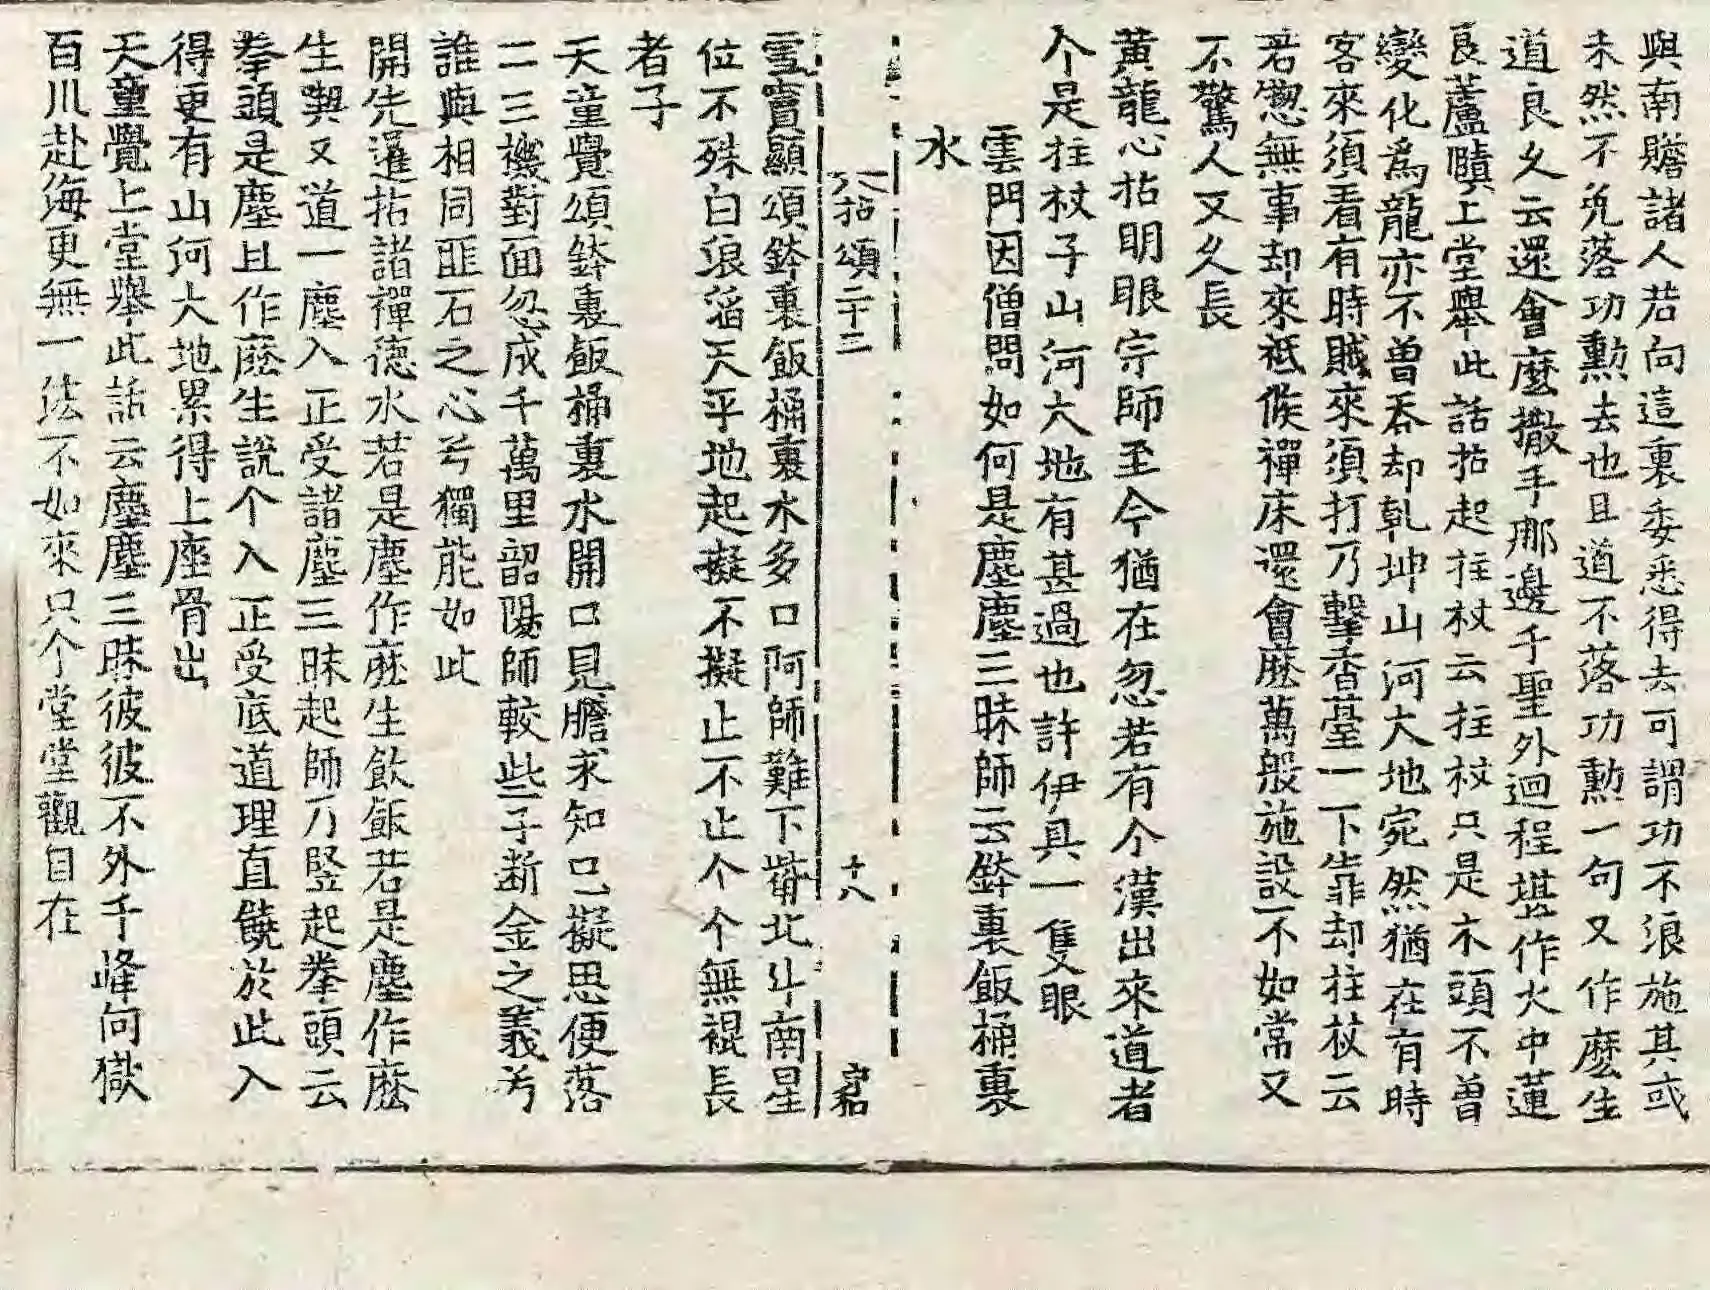 與南贍諸人若向這裏委悉得去可謂功不浪施其或
未然不免落功勳去也且道不落功勳一句又作麽生
道良久云還會麽撒手那邊千聖外迴程堪作火中蓮
長蘆賾上堂擧此話拈起拄杖云拄杖只是木頭不曾
變化爲龍亦不曾吞却乹坤山河大地宛然猶在有時
客來須看有時賊來須打乃擊香臺一下靠却拄杖云
若惣無事却來祇候禪床還會麽萬般施設不如常又
不驚人又久長
黃龍心拈明眼宗師至今猶在忽若有个漢出來道者
个是拄杖子山河大地有甚過也許伊具一隻眼
雲門因僧問如何是塵塵三昧師云鉢裏飯桶裏
水
八 拈頌二十三 十八
雪竇顯頌鉢裏飯桶裏水多口阿師難下觜北斗南星
位不殊白浪滔天平地起擬不擬止不止个个無裩長
者子
天童覺頌鉢裏飯桶裏水開口見膽求知已擬思便落
二三機對面忽成千萬里韶陽師較些子断金之義兮
誰與相同匪石之心兮獨能如此
開先暹拈諸禪德水若是塵作麽生飮飯若是塵作麽
生喫又道一塵入正受諸塵三昧起師乃竪起拳頭云
拳頭是塵且作麽生說个入正受底道理直饒於此入
得更有山河大地累得上座骨出
天童覺上堂擧此話云塵塵三昧彼彼不外千峰向嶽
百川赴海更無一法不如來只个堂堂觀自在